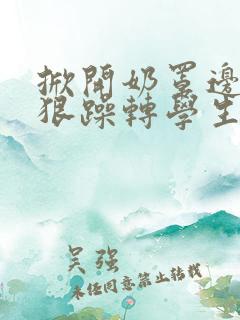 掀開奶罩邊
狠躁轉學生
吴强
未经同意禁止转载